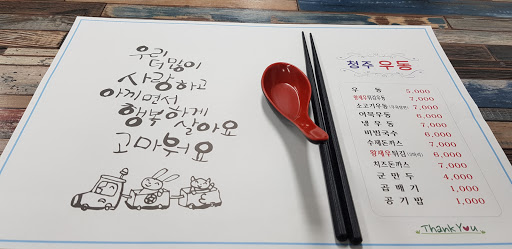 우리
더 많이
사랑하고
아끼면서
행복하게
살아요
고마워요
청주 우동
우동 5,000
왕새우튀김우동 7,000
소고기우동 7,000
어묵우동 6,000
냉우동 7,000
비빔국수 6,000
수제돈까스 7,000
왕새우튀김 6,000
치즈돈까스 7,000
군만두 4,000
곱빼기 1,000
공기밥 1,000
Thank You